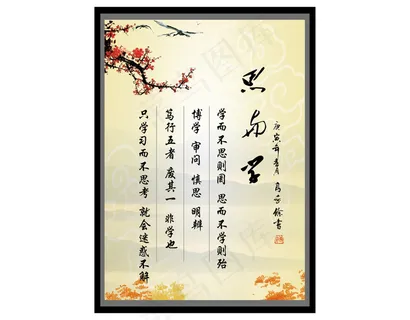 思与学
庚寅年
学而不思则罔 思而不学则殆
博学 审问 慎思 明辨
笃行五者 废其一 非学也
只学习而不思考 就会迷惑不解